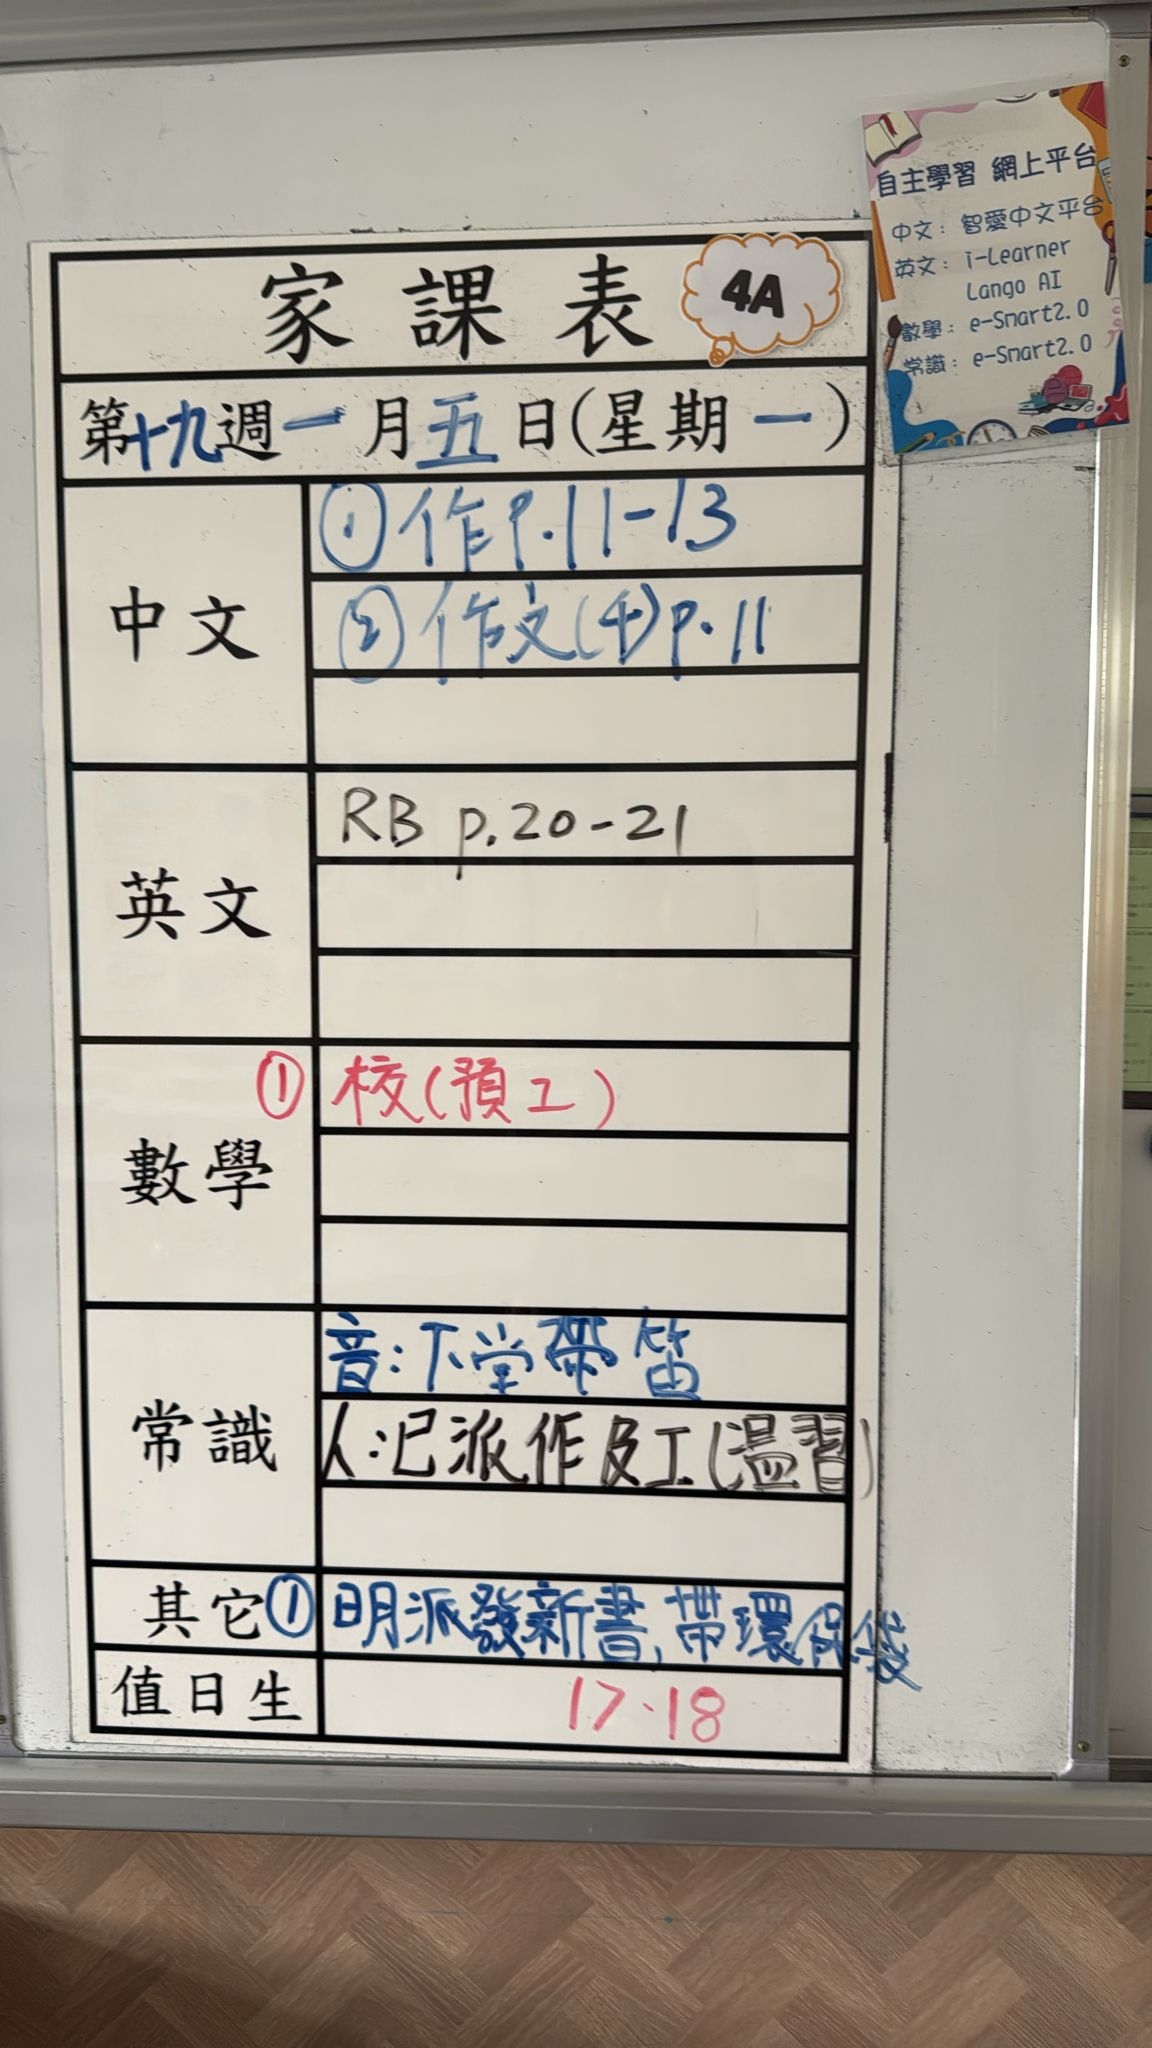 自主學習 網上平台
中文：智愛中文平台
英文：i-Learner
Lango AI
數學：e-Smart2.0
常識：e-Smart2.0
家課表 4A
第十九週一月五日(星期一)
中文
① 作P.11-13
② 作文(4)P.11
英文
RB p.20-21
數學
① 校(預工)
常識
音：下堂帶笛
人：已派作及工(溫習)
其它① 明派發新書，帶環保袋
值日生 17.18